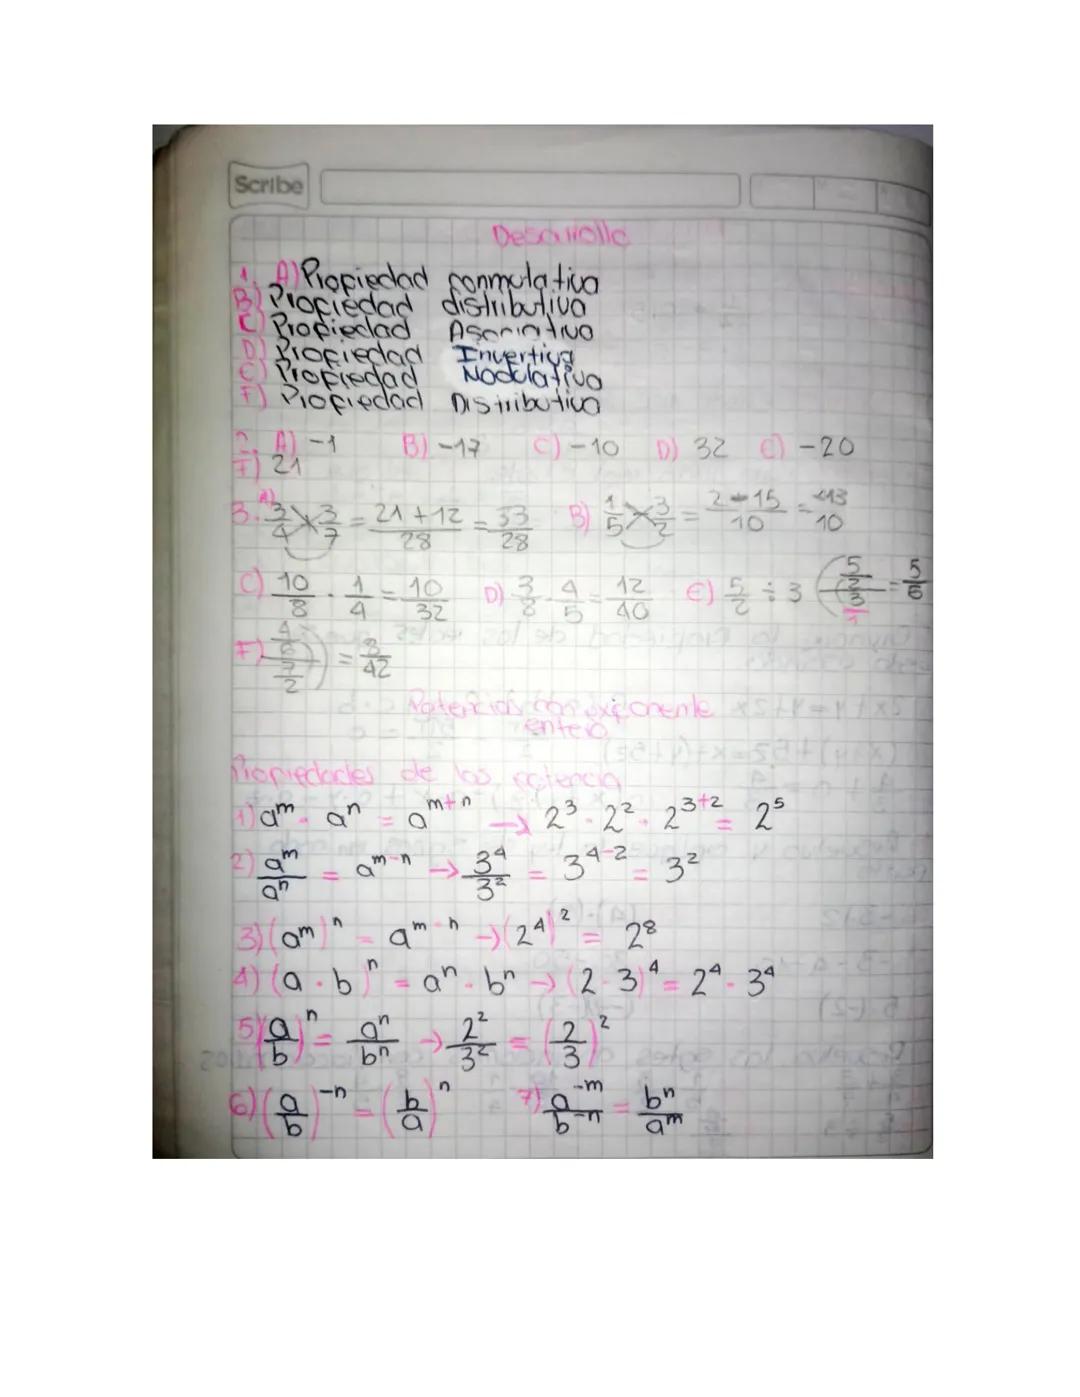 Scribe
Desarrollo
1. A) Propiedad conmutativa
B) Propiedad distributiva
C) Propiedad Asociativa
D) Propiedad Invertiva
E) Propiedad Modulativa
F) Propiedad Distributiva
2. A) -1 B) -17 C) -10 D) 32 E) -20
F) 21
3. A) 3/4 3/7 = 21+12/28 = 33/28 B) 1/5 3/2 = 2-15/10 = -13/10
C) 10/8 · 1/4 = 10/32 D) 3/8 · 4/5 = 12/40 E) 5/2 ÷ 3 = 5/6
F) = 8/42
Potencias con exponente
entero
Propiedades de las potencia
1) a^m · a^n = a^m+n → 2^3 · 2^2 · 2^3+2 = 2^5
2) a^m/a^n = a^m-n → 3^4/3^2 = 3^4-2 = 3^2
3) (a^m)^n = a^m·n → (2^4)^2 = 2^8
4) (a · b)^n = a^n · b^n → (2·3)^4 = 2^4 · 3^4
5) (a/b)^n = a^n/b^n → 2^2/3^2 = (2/3)^2
6) (a/b)^-n = (b/a)^n 7) a^-m/b^-n = b^n/a^m